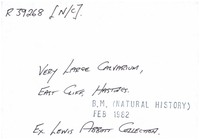 R 39268 [N/C].
Very Large Calvarium,
East Cliff, Hastings.
B.M. (NATURAL HISTORY)
FEB 1962
Ex Lewis Abbott Collection.